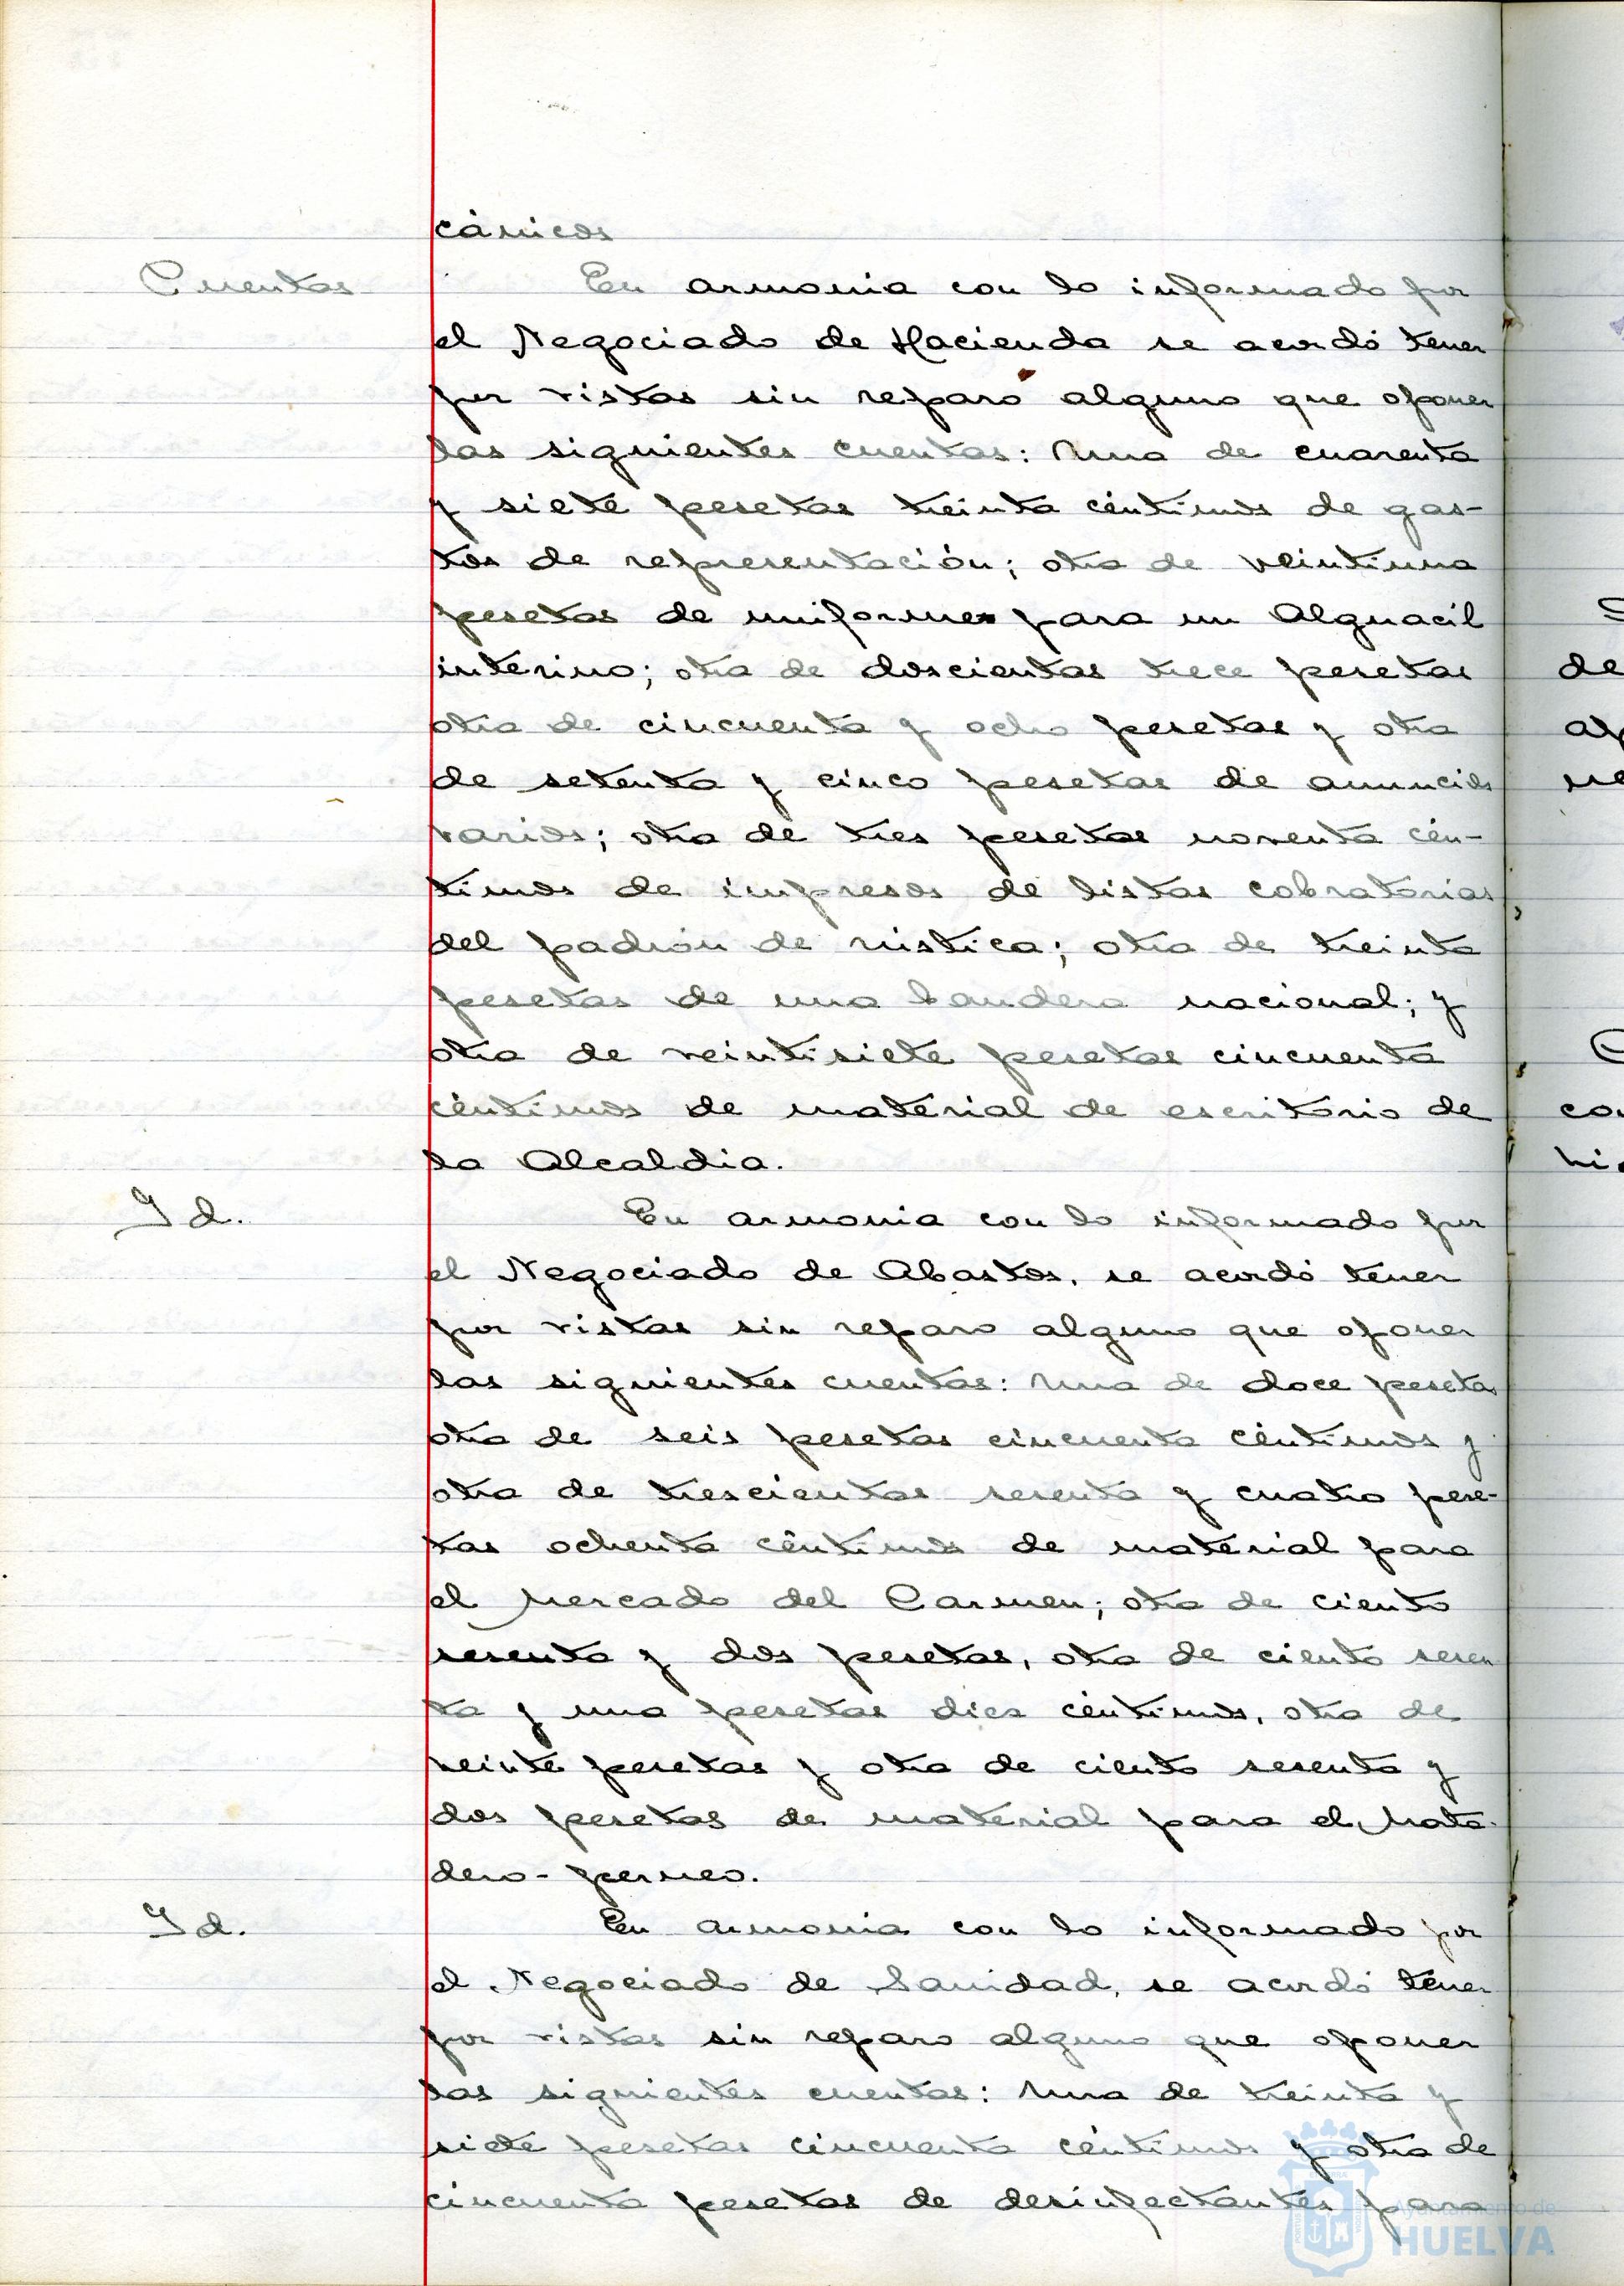 cánicos
Cuentas
En armonia con lo informado por
el Negociado de Hacienda se acordó tener
por vistas sin reparo alguno que oponer
las siguientes cuentas: Una de cuarenta
y siete pesetas treinta céntimos de gas-
tos de representación; otra de veintiuna
pesetas de uniformes para un Alguacil
interino; otra de doscientas trece pesetas
otra de cincuenta y ocho pesetas y otra
de setenta y cinco pesetas de anuncios
varios; otra de tres pesetas noventa cén-
timos de impresos de listas cobratorias
del padrón de rústica; otra de treinta
pesetas de una bandera nacional; y
otra de veintisiete pesetas cincuenta
céntimos de material de escritorio de
la Alcaldia.
Id.
En armonia con lo informado por
el Negociado de Abastos, se acordó tener
por vistas sin reparo alguno que oponer
las siguientes cuentas: Una de doce pesetas
otra de seis pesetas cincuenta céntimos y
otra de trescientas sesenta y cuatro pese-
tas ochenta céntimos de material para
el Mercado del Carmen; otra de ciento
sesenta y dos pesetas, otra de ciento sesen
ta y una pesetas diez céntimos, otra de
veinte pesetas y otra de ciento sesenta y
dos pesetas de material para el Mata-
dero-perneo.
Id.
En armonia con lo informado por
el Negociado de Sanidad, se acordó tener
por vistas sin reparo alguno que oponer
las siguientes cuentas: Una de treinta y
siete pesetas cincuenta céntimos y otra de
cincuenta pesetas de desinfectantes para
Ayuntamiento de
HUELVA